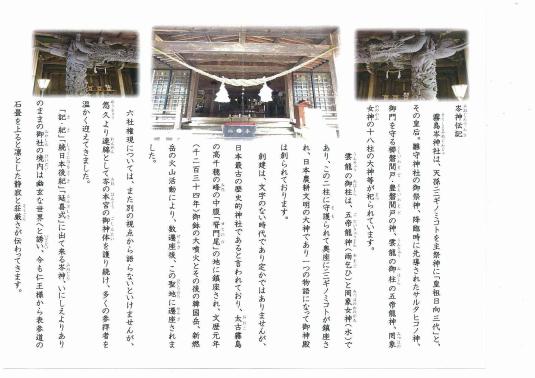 岑神伝記
霧島岑神社は、天孫ニニギノミコトを主祭神に「皇祖日向三代」と、
その皇后。雛守神社の御祭神、降臨時に先導されたサルタヒコノ神、
御門を守る櫛磐間戸・豊磐間戸の神、雲龍の御柱の五帝龍神、岡象
女神の十八柱の大神等が祀られています。
雲龍の御柱は、五帝龍神(雨乞ひ)と岡象女神(水)で
あり、この二柱に守護られて奥座にニニギノミコトが鎮座さ
れ、日本農耕文明の大神であり一つの物語になって御神殿
は創られております。
創建は、文字のない時代であり定かではありませんが、
日本最古の歴史的神社であると言われており、太古霧島
の高千穂の峰の中腹「脊門尾」の地に鎮座され、文歴元年
(千二百三十四年)御鉢の大噴火とその後の韓国岳、新燃
岳の火山活動により、数遷座後、この聖地に遷座されま
した。
六社権現については、また別の視点から語らないといけませんが、
悠久より連綿として岑の本宮の御神体を護り続け、多くの参拝者を
温かく迎えてきました。
「記・紀」「続日本後紀」「延喜式」に出て来る岑神、いにしえよりあり
のままの御社の境内は幽玄な世界へと誘い、今も仁王様から表参道の
石畳を上ると凛とした静寂と荘厳さが伝わってきます。